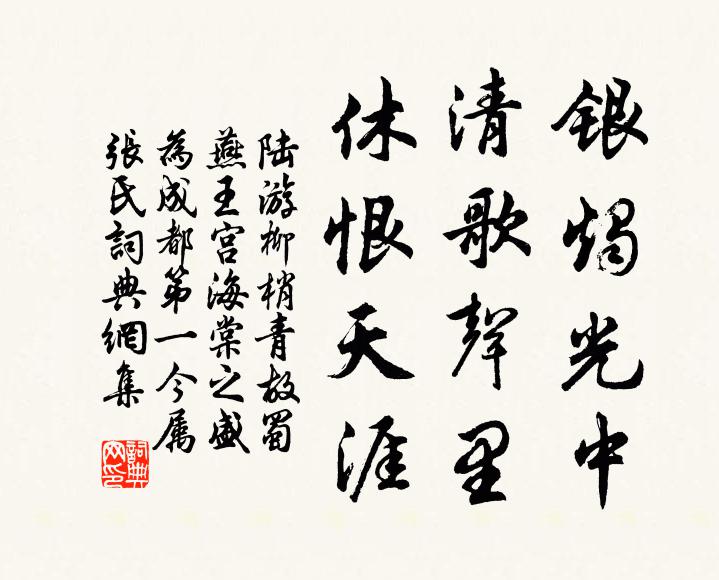 银烛光中
清歌聲里
休恨天涯
陆游柳梢青故蜀
燕王宫海棠之盛
為成都第一今属
張氏詞典網集
詞典
网印